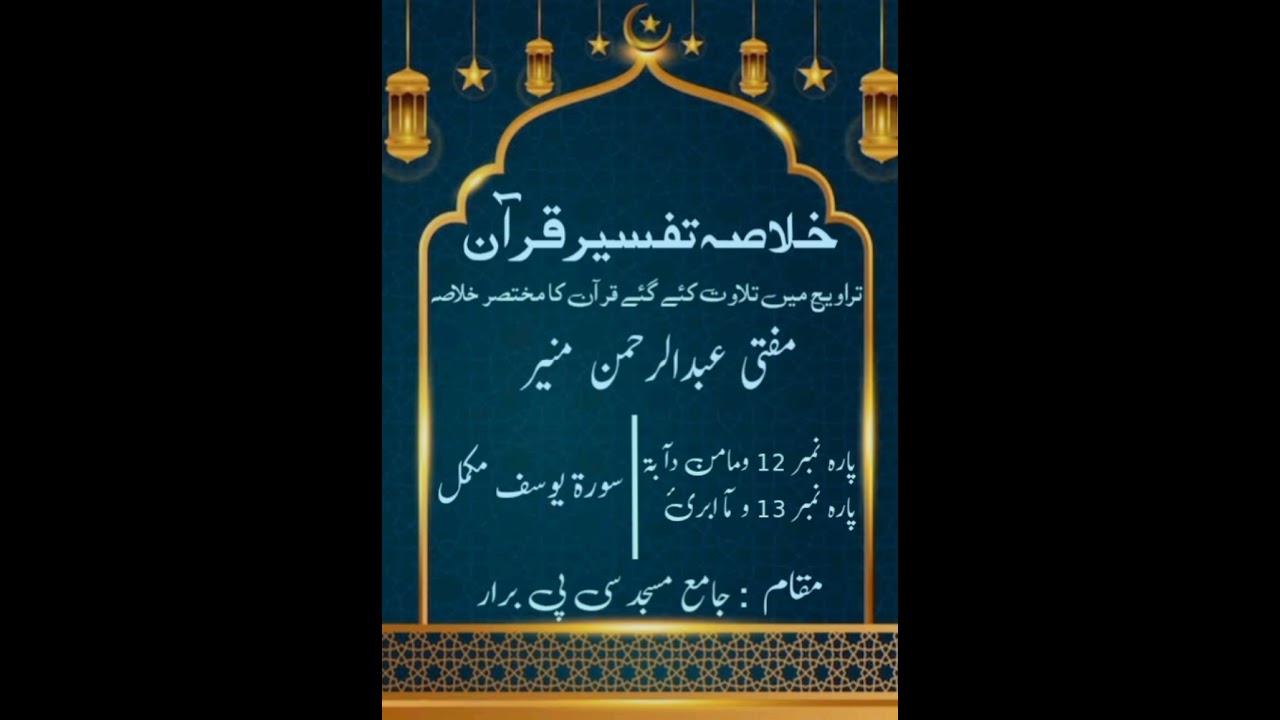 خلاصہ تفسیر قرآن
تراویح میں تلاوت کئے گئے قرآن کا مختصر خلاصہ
مفتی عبدالرحمن منیر
پارہ نمبر 12 ومامن دآبۃ
پارہ نمبر 13 و مآ ابرئ
سورۃ یوسف مکمل
مقام : جامع مسجد سی پی برار